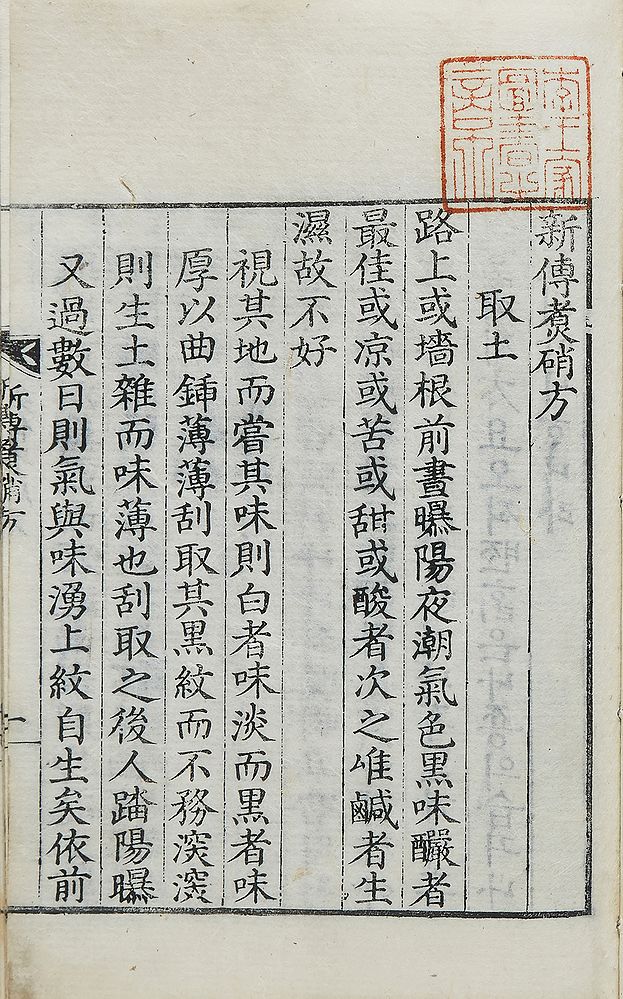 新傳煑硝方
取土
路上或墻根前晝曝陽夜潮氣色黒味釅者
最佳或凉或苦或甜或酸者次之唯鹹者生
濕故不好
視其地而嘗其味則白者味淡而黒者味
厚以曲鍤薄薄刮取其黒紋而不務深深
則生土雜而味薄也刮取之後人踏陽曝
又過數日則氣與味湧上紋自生矣依前
新傳煑硝方
一
李王家
圖書之
章